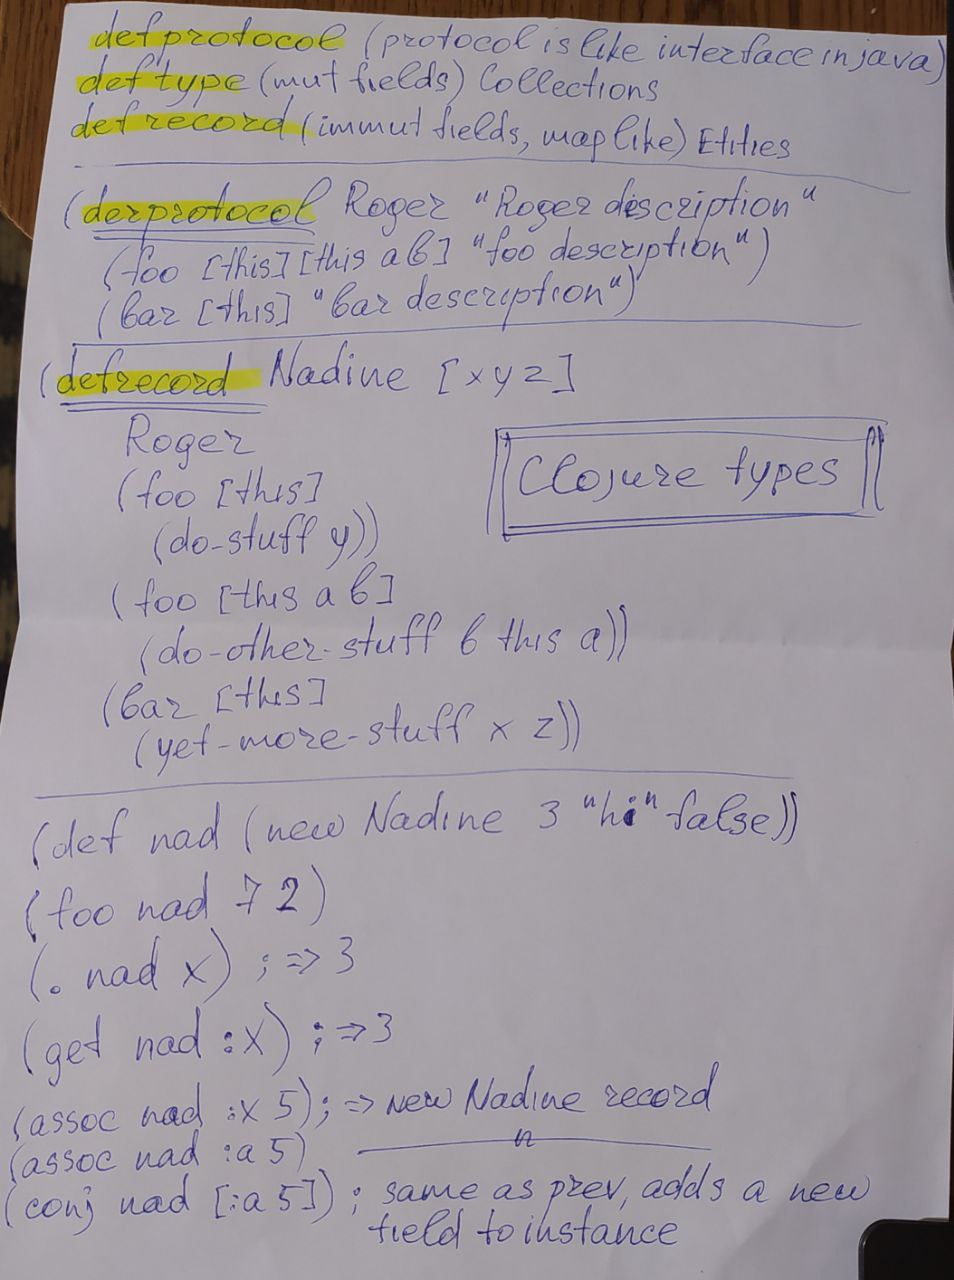 defprotocol (protocol is like interface in java)
deftype (mut fields) Collections
defrecord (immut fields, map like) Etities
(derprotocol Roger "Roger description"
(foo [this] [this a b] "foo description")
(bar [this] "bar description")
(defrecord Nadine [x y z]
Roger
(foo [this]
(do-stuff y))
Clojure types
(foo [this a b]
(do-other-stuff b this a))
(bar [this]
(yet-more-stuff x z))
(def nad (new Nadine 3 "hi" false))
(foo nad 7 2)
(. nad x) ; => 3
(get nad :x) ; => 3
(assoc nad :x 5); => new Nadine record
(assoc nad :a 5) — " —
(conj nad [:a 5]) ; same as prev, adds a new
field to instance